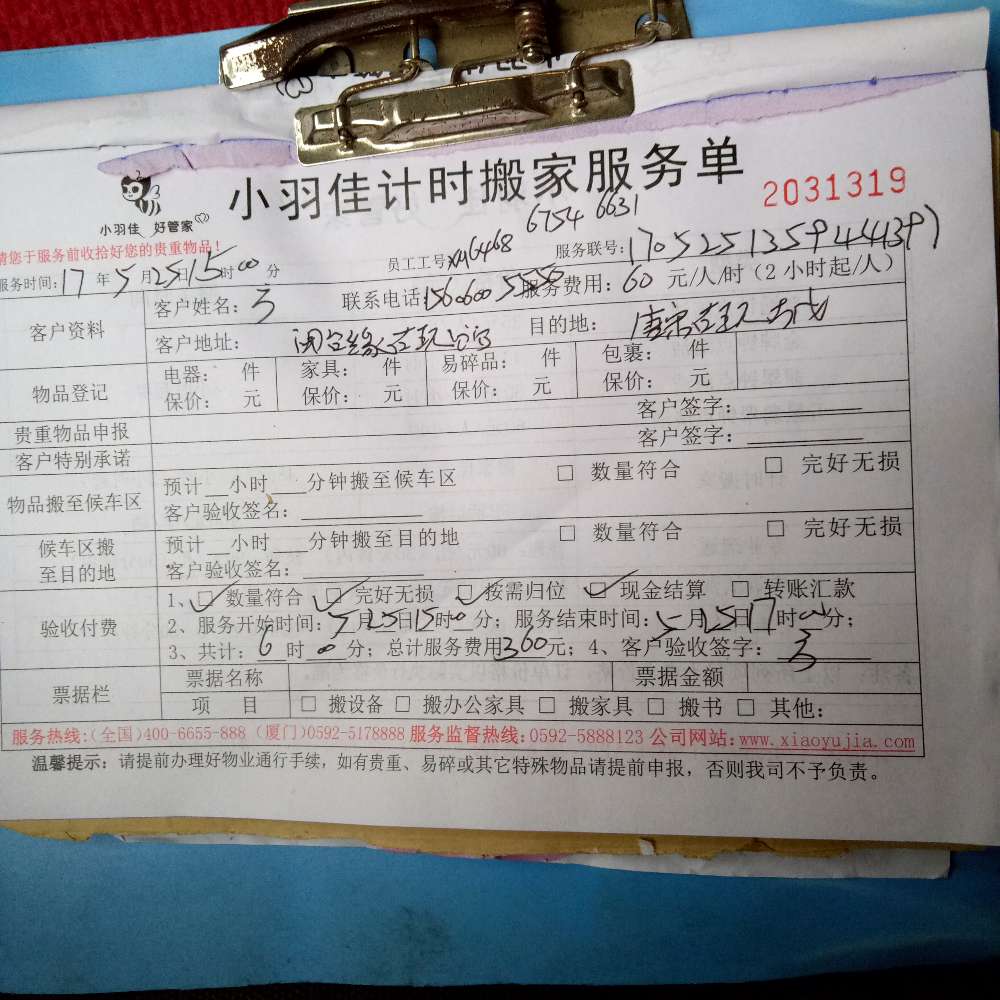 小羽佳 好管家
小羽佳计时搬家服务单
2031319
请您于服务前收拾好您的贵重物品!
6754 6631
服务时间:17年5月25日15时00分 员工工号xy6468 服务联号:
客户资料 客户姓名: 联系电话: 服务费用:60元/人/时(2小时起/人)
客户地址: 目的地:
物品登记 电器: 件 家具: 件 易碎品: 件 包裹: 件
保价: 元 保价: 元 保价: 元 保价: 元
贵重物品申报 客户签字:
客户特别承诺 客户签字:
物品搬至候车区 预计__小时___分钟搬至候车区 □ 数量符合 □ 完好无损
客户验收签名:
候车区搬至目的地 预计__小时___分钟搬至目的地 □ 数量符合 □ 完好无损
客户验收签名:
验收付费 1、☑ 数量符合 ☑ 完好无损 ☑ 按需归位 ☑ 现金结算 □ 转账汇款
2、服务开始时间:5月25日15时00分;服务结束时间:5月25日17时00分;
3、共计:6时00分;总计服务费用360元;4、客户验收签字:
票据栏 票据名称 票据金额
项 目 □ 搬设备 □ 搬办公家具 □ 搬家具 □ 搬书 □ 其他:
服务热线:(全国)400-6655-888 (厦门)0592-5178888 服务监督热线:0592-5888123 公司网站:www.xiaoyujia.com
温馨提示:请提前办理好物业通行手续,如有贵重、易碎或其它特殊物品请提前申报,否则我司不予负责。